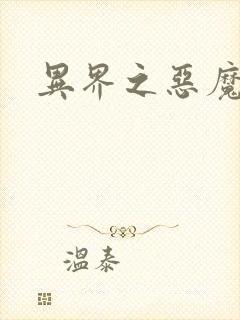 異界之惡魔
溫泰